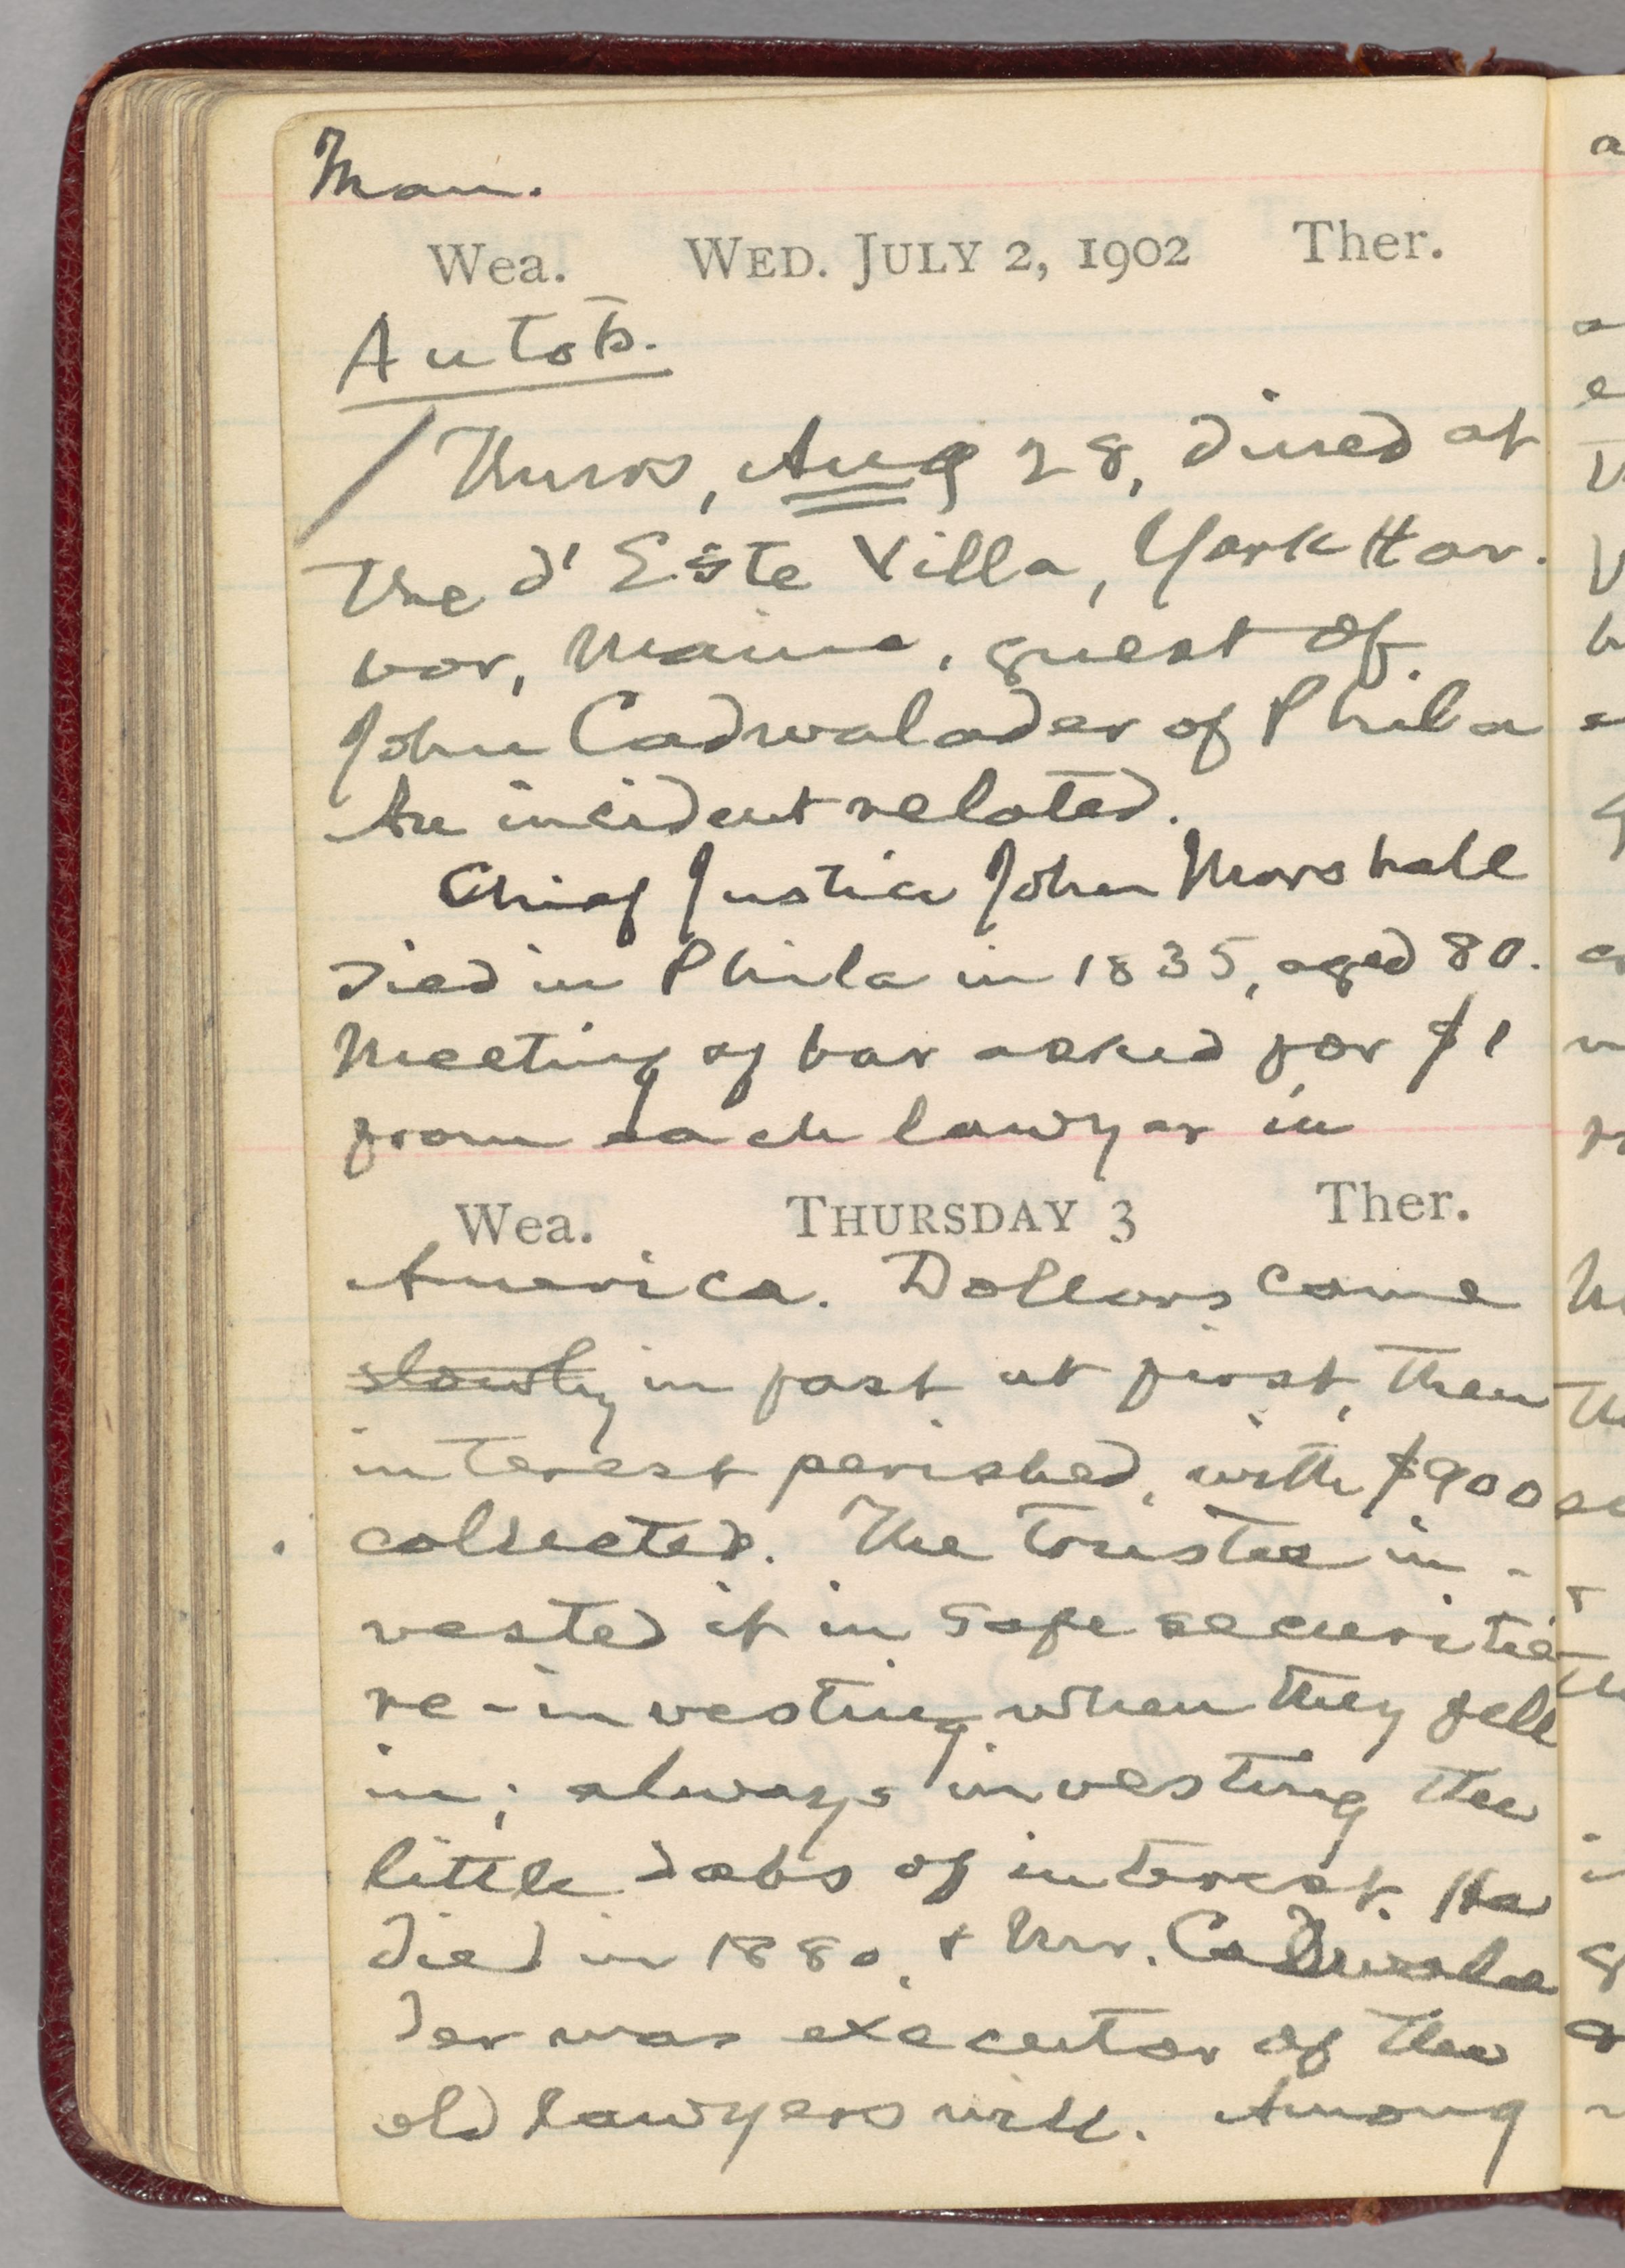 Man.
Wea. WED. JULY 2, 1902 Ther.
Autob.
Thurs, Aug 28, dined at
the d'Este Villa, York Har-
bor, Maine, guest of
John Cadwalader of Phila
An incident related.
Chief Justice John Marshall
died in Phila in 1835, aged 80.
Meeting of bar asked for $1
from each lawyer in
Wea. THURSDAY 3 Ther.
America. Dollars came
slowly in fast at first, then
interest perished, with $900
collected. The trustee in-
vested it in safe securities
re-investing when they fell
in; always investing the
little dabs of interest. He
died in 1880, & Mr. Cadwala
der was executor of the
old lawyers will. Among